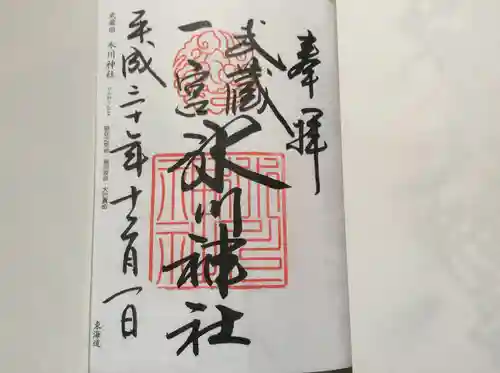 奉拝
武蔵
一宮
氷川神社
平成二十一年十二月一日
武蔵国 氷川神社
東海道